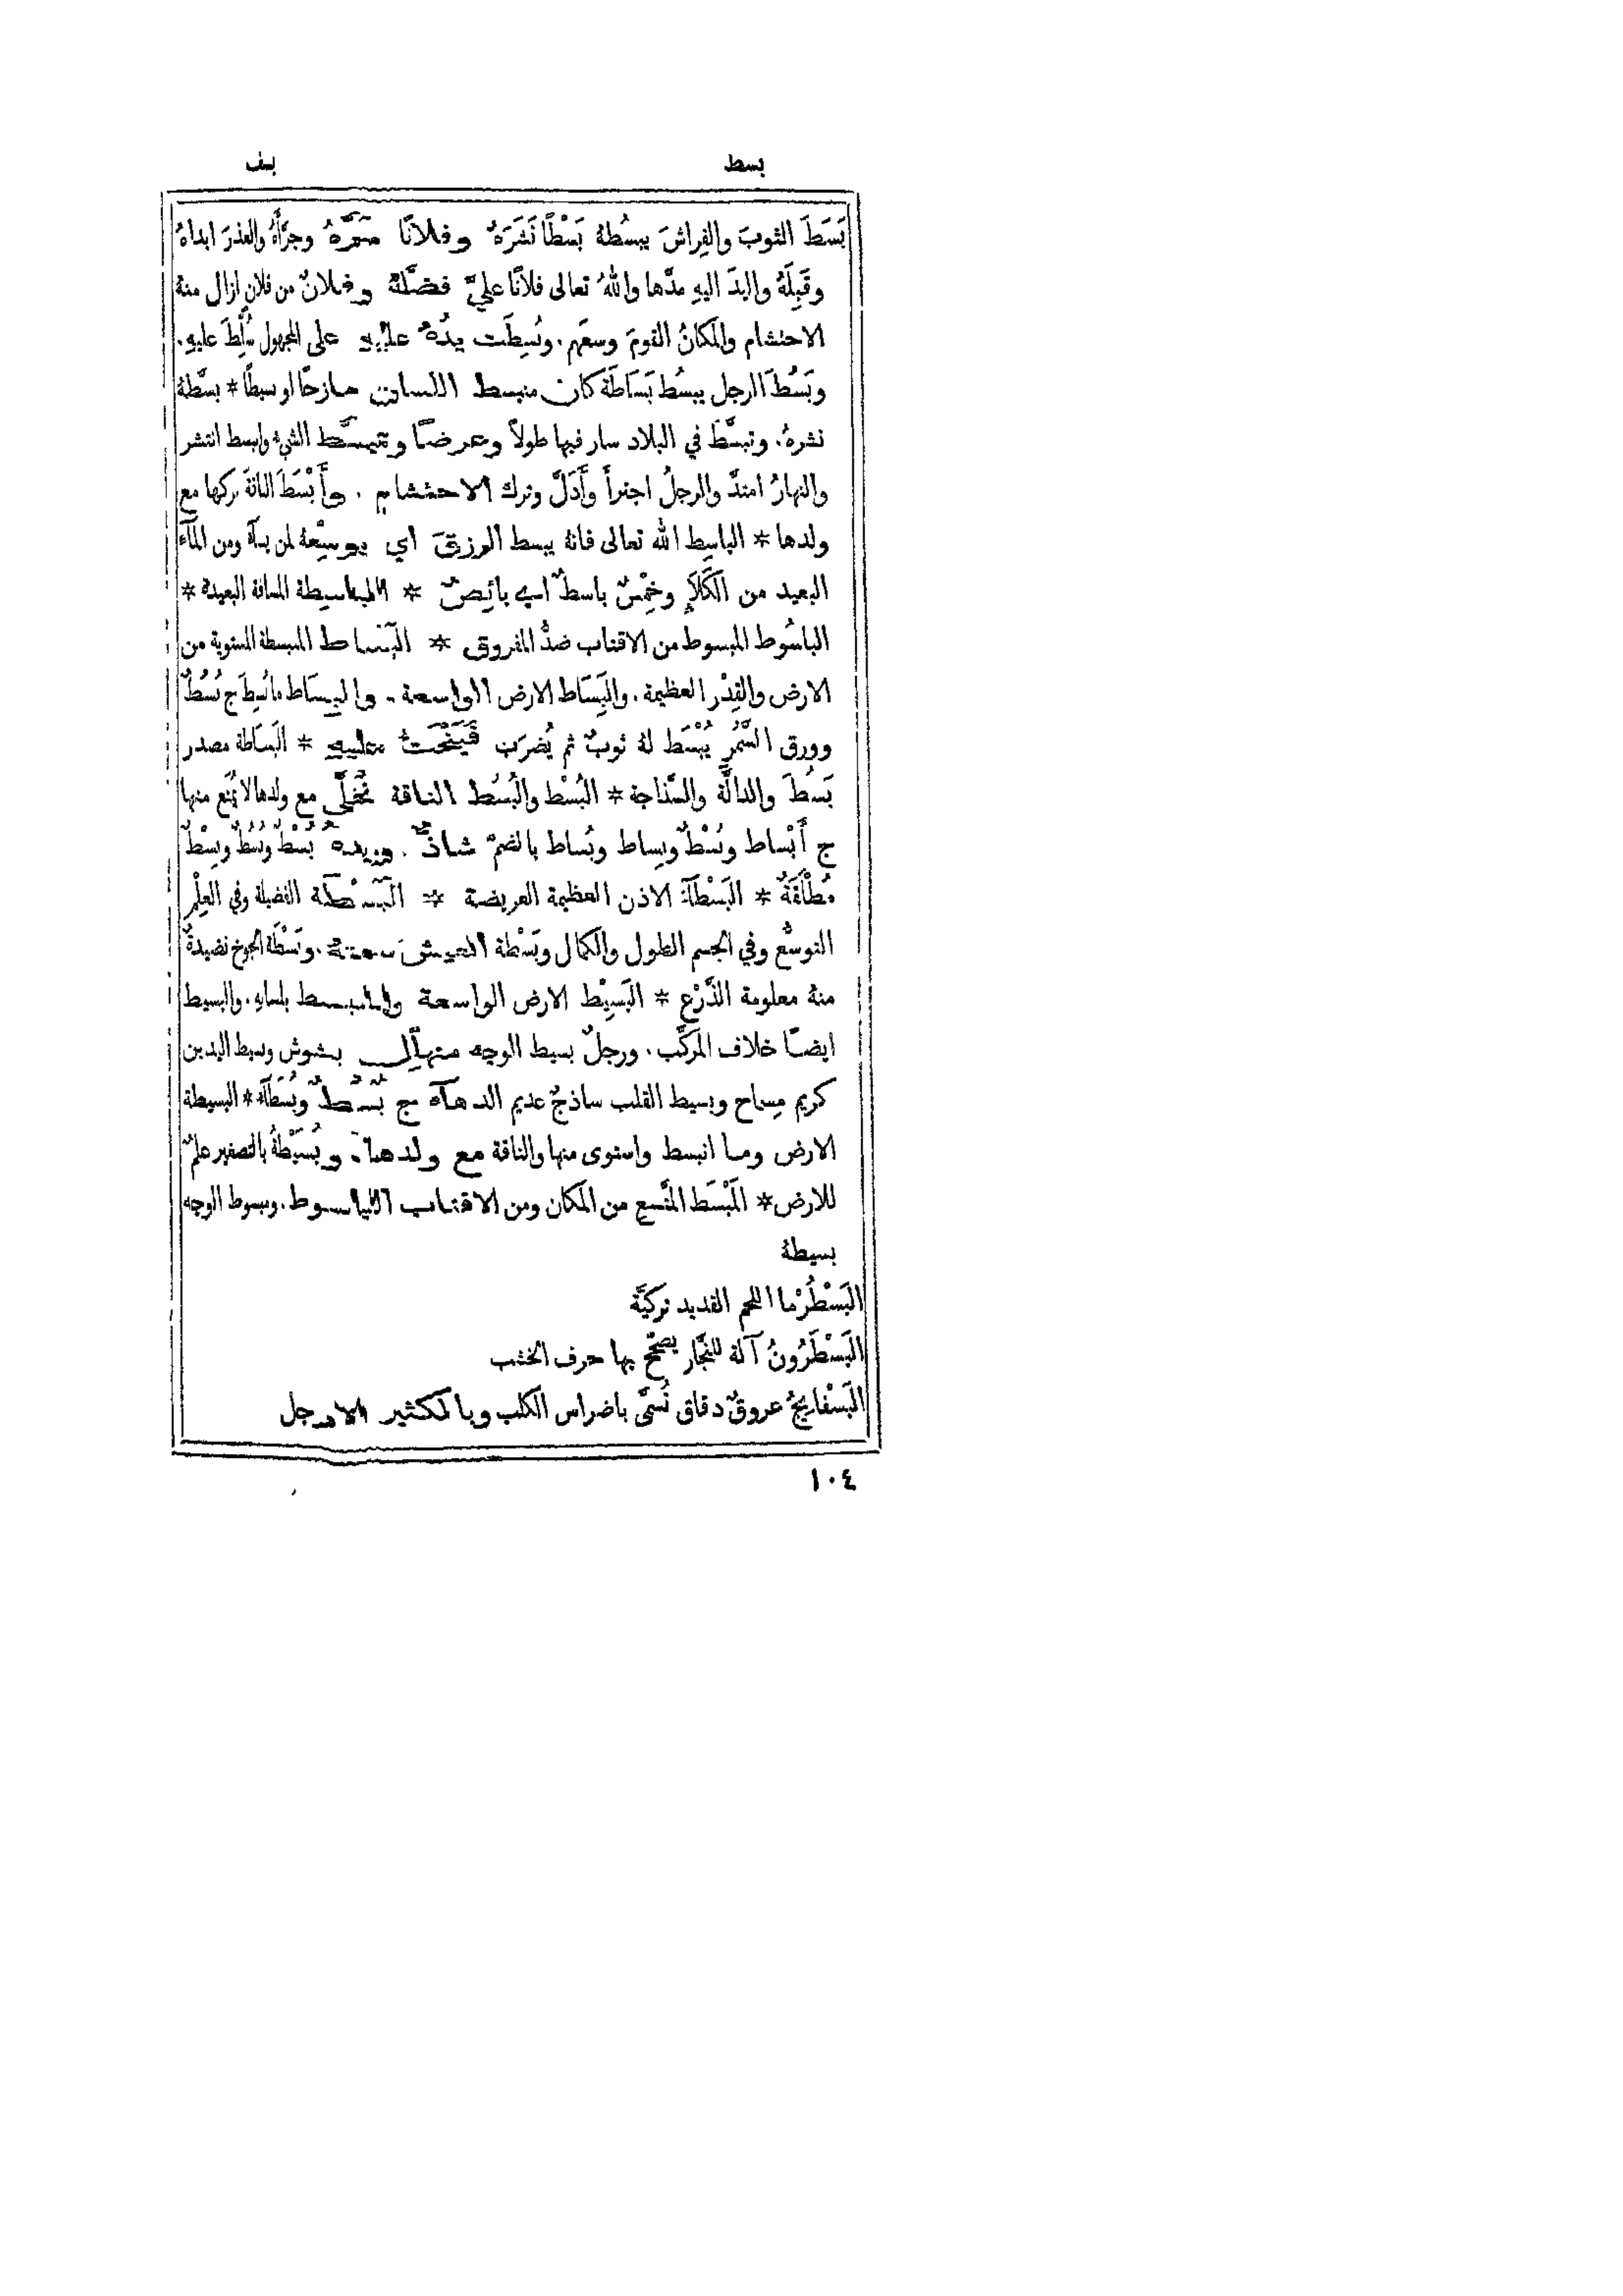 بسط
بسف
بَسَطَ الثوبَ والفِراشَ يبسُطهُ بَسْطًا نَشَرَهُ وفلانًا سَرَّهُ وجرَّأَهُ والعذرَ ابداهُ
وقَبِلَهُ واليدَ اليهِ مدَّها واللهُ تعالى فلانًا عليَّ فضَّلهُ وفلانٌ من فلانٍ ازال منهُ
الاحتشام والمكانُ القومَ وسعَهم. وبُسِطَت يدُهُ عليهِ على المجهول سُلِّطَ عليهِ.
وبَسُطَ الرجل يبسُط بَسَاطَةً كان منبسط اللسان مازحًا او بسيطًا * بسَّطهُ
نشرهُ. وتبسَّطَ في البلاد سار فيها طولاً وعرضًا وتبسَّط الشيءُ وانبسط انتشر
والنهارُ امتدَّ والرجلُ اجترأَ وأَدَلَّ وترك الاحتشام. وأَبْسَطَ الناقة تركها مع
ولدها * الباسِط الله تعالى فانهُ يبسط الرزق اي يوسِّعهُ لمن يشآءُ ومن المآءِ
البعيد من الكَلَإِ وخِمْسٌ باسطٌ اي بائِصٌ * الباسِطة المسافة البعيدة *
الباسُوط المبسوط من الاقتاب ضدُّ المفروق * البَسَاط المنبسطة المستوية من
الارض والقِدْر العظيمة. والبَِسَاط الارض الواسعة. والبِسَاط ما بُسِطَ ج بُسُطٌ
وورق السَّمُر يُبْسَط لهُ ثوبٌ ثم يُضرَب فَيَنْحَتُّ عليهِ * البَسَاطة مصدر
بَسُطَ والدالَّة والسَّذاجة * البُسْط والبُسُط الناقة تُخَلَّى مع ولدها لا تُمنَع منها
ج أَبْساط وبُسْطٌ وبِساط وبُساط بالضمّ شاذٌّ. ويدهُ بُسْطٌ وبُسُطٌ وبِسْطٌ
مُطْلَقَةٌ * البَسْطَآءُ الاذن العظيمة العريضة * البَسْطَة الفضيلة وفي العِلْم
التوسُّع وفي الجسم الطول والكمال وبَسْطة العيش سعتهُ. وبَسْطَة الجوخ نضيدةٌ
منهُ معلومة الذَّرْع * البَسِيْط الارض الواسعة والمنبسط بلسانهِ. والبسيط
ايضًا خلاف المركَّب. ورجلٌ بسيط الوجه متهلِّل بشوش وبسيط اليدين
كريم مِسماح وبسيط القلب ساذجٌ عديم الدهآء ج بُسُطٌ وبُسَطَآءُ * البسيطة
الارض وما انبسط واستوى منها والناقة مع ولدها. وبُسَيْطةُ بالتصغير علمٌ
للارض * المَبْسَط المتَّسع من المكان ومن الاقتاب الباسوط. ومبسوط الوجه
بسيطهُ
البَسْطُرْما اللحم القديد تركيَّة
البَسْطَرُونُ آلة للنجَّار يصحِّح بها حرف الخشب
البَسْفايجُ عروقٌ دقاق تُسمَّى باضراس الكلب وبالكثير الارجل
١٠٤